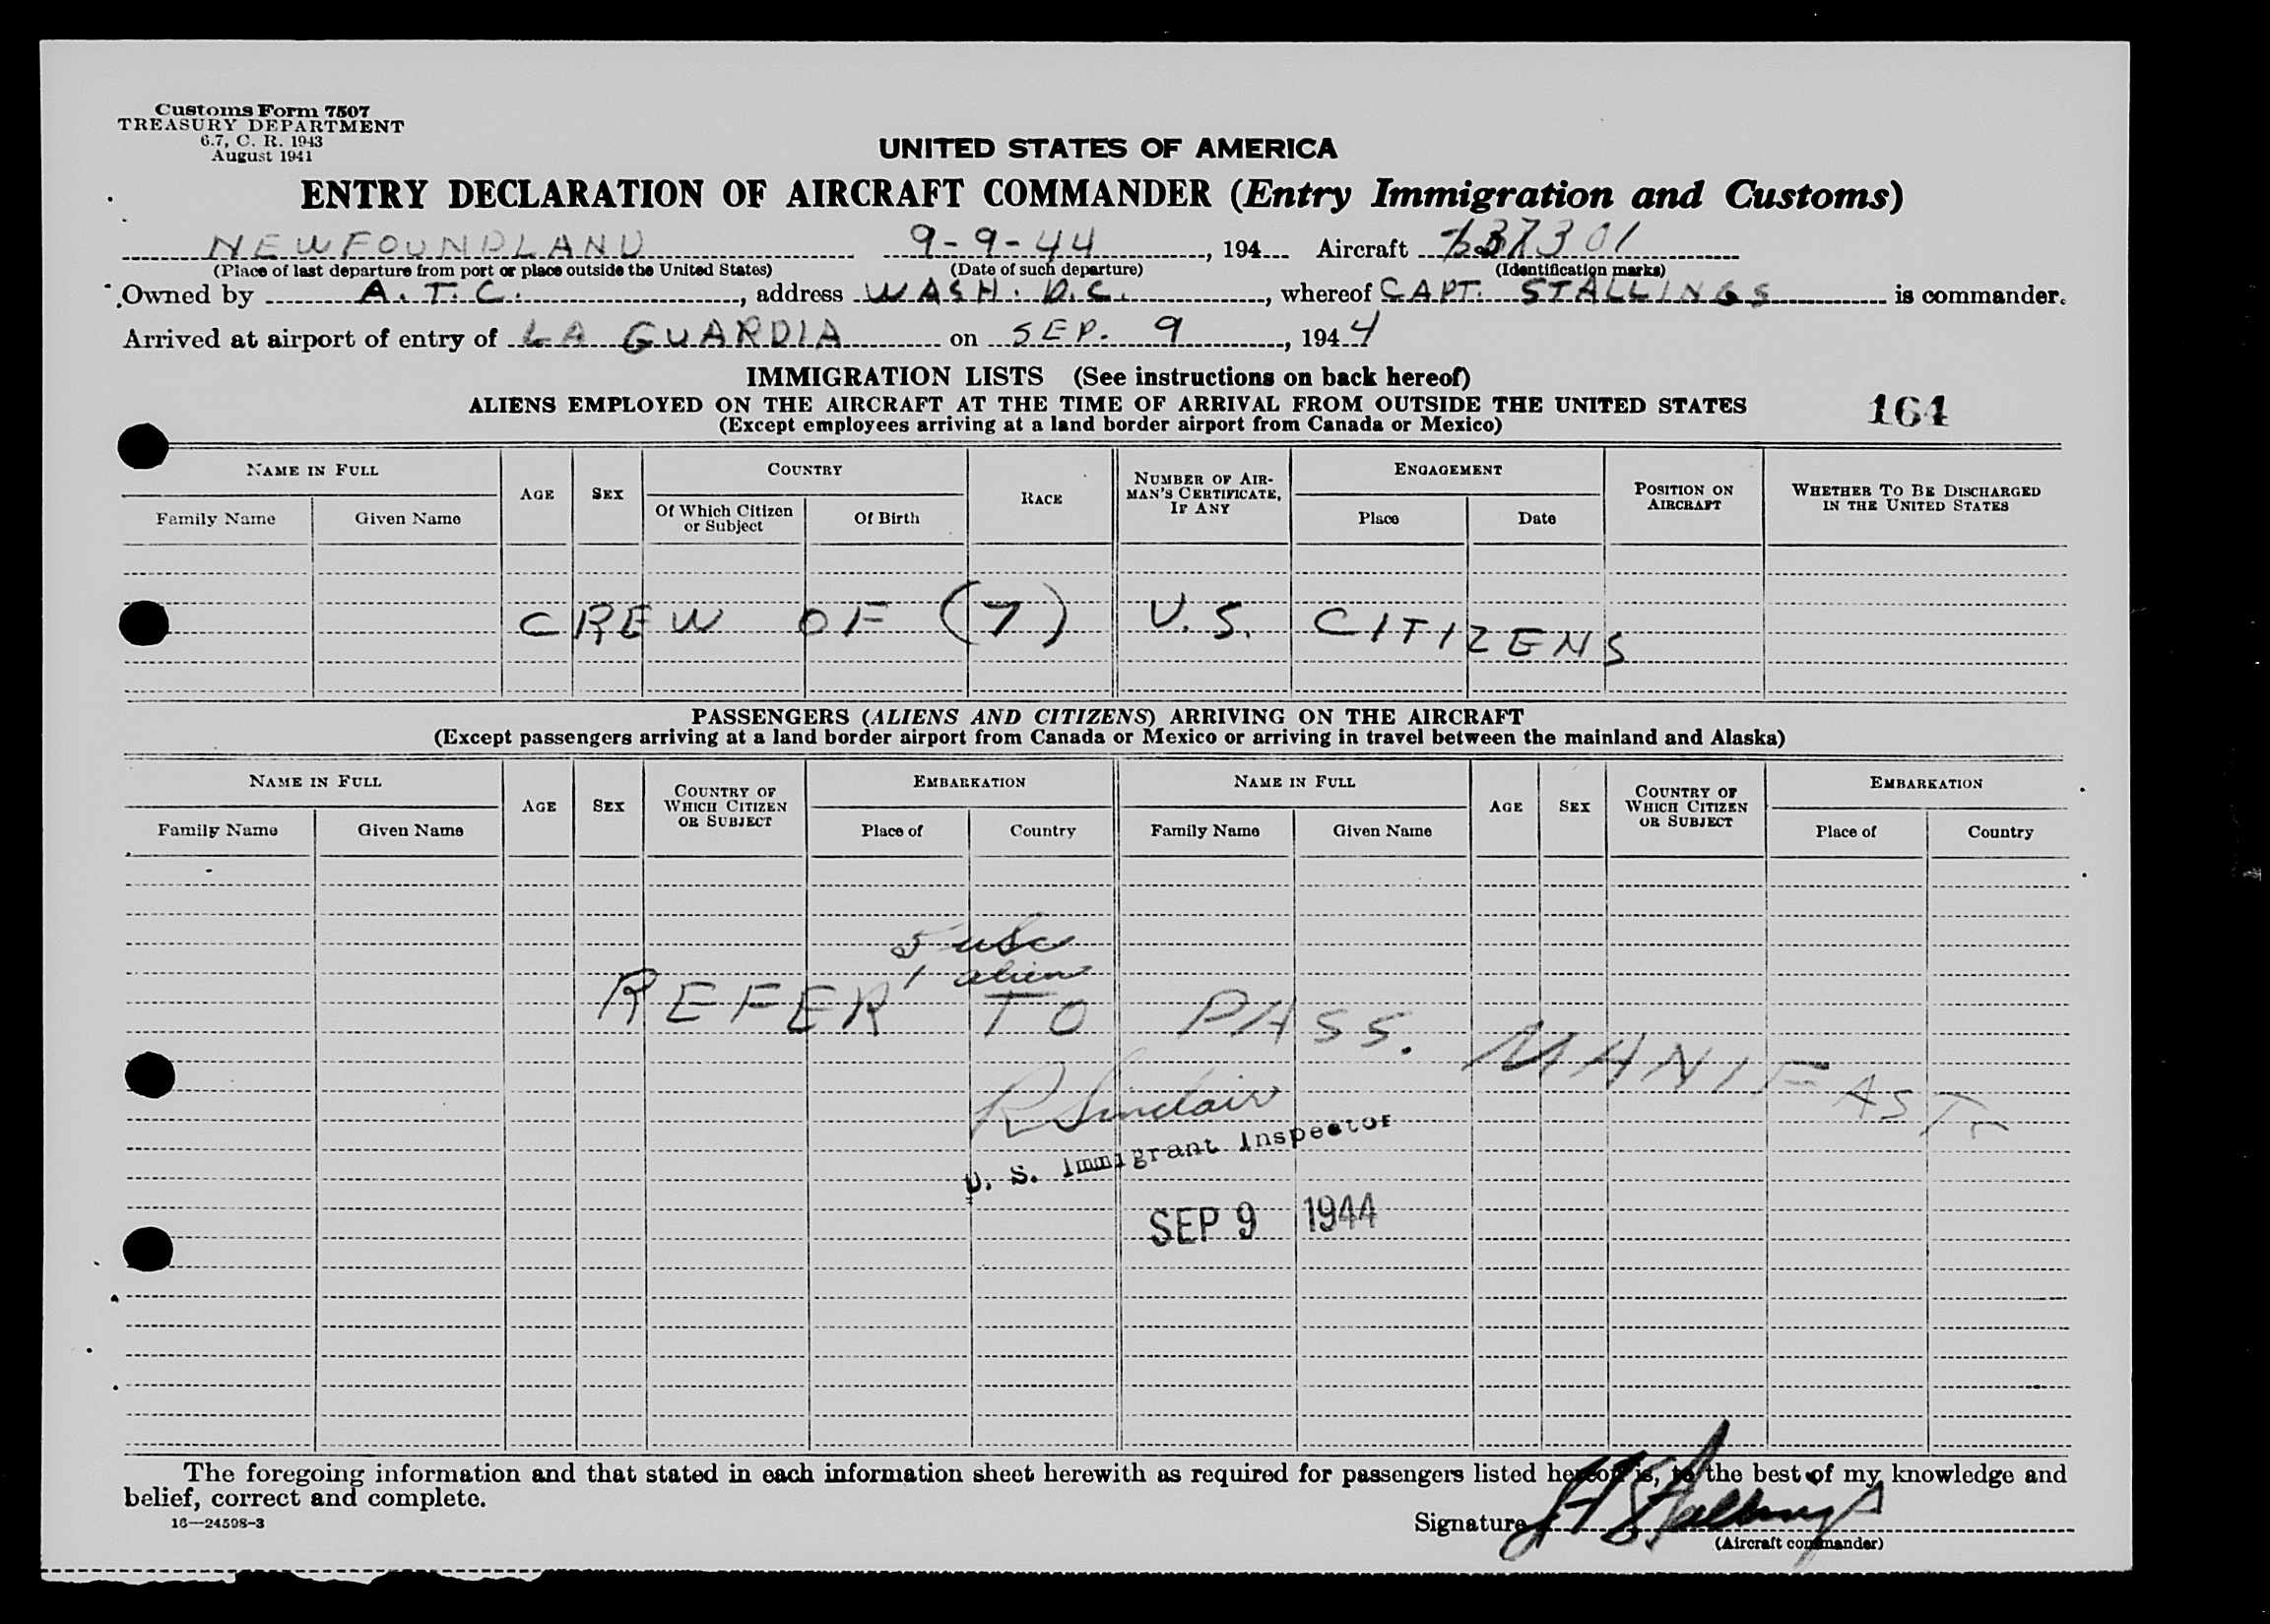 Customs Form 7507
TREASURY DEPARTMENT
6.7, C. R. 1943
August 1941
UNITED STATES OF AMERICA
ENTRY DECLARATION OF AIRCRAFT COMMANDER (Entry Immigration and Customs)
NEWFOUNDLAND 9-9-44, 194 Aircraft
(Place of last departure from port or place outside the United States) (Date of such departure) (Identification marks)
Owned by A.T.C., address WASH. D.C., whereof CAPT. STALLINGS is commander.
Arrived at airport of entry of LA GUARDIA on SEP. 9, 1944
IMMIGRATION LISTS (See instructions on back hereof)
ALIENS EMPLOYED ON THE AIRCRAFT AT THE TIME OF ARRIVAL FROM OUTSIDE THE UNITED STATES
164
(Except employees arriving at a land border airport from Canada or Mexico)
NAME IN FULL AGE SEX COUNTRY RACE NUMBER OF AIR-MAN'S CERTIFICATE, IF ANY ENGAGEMENT POSITION ON AIRCRAFT WHETHER TO BE DISCHARGED IN THE UNITED STATES
Family Name Given Name Of Which Citizen or Subject Of Birth Place Date
CREW OF (7) U.S. CITIZENS
PASSENGERS (ALIENS AND CITIZENS) ARRIVING ON THE AIRCRAFT
(Except passengers arriving at a land border airport from Canada or Mexico or arriving in travel between the mainland and Alaska)
NAME IN FULL AGE SEX COUNTRY OF WHICH CITIZEN OR SUBJECT EMBARKATION NAME IN FULL AGE SEX COUNTRY OF WHICH CITIZEN OR SUBJECT EMBARKATION
Family Name Given Name Place of Country Family Name Given Name Place of Country
5 usc
1 alien
REFER TO PASS. MANIFAST
R Sinclair
U. S. Immigrant Inspector
SEP 9 1944
The foregoing information and that stated in each information sheet herewith as required for passengers listed hereof is, to the best of my knowledge and
belief, correct and complete.
16—24598-3
Signature Stallings
(Aircraft commander)